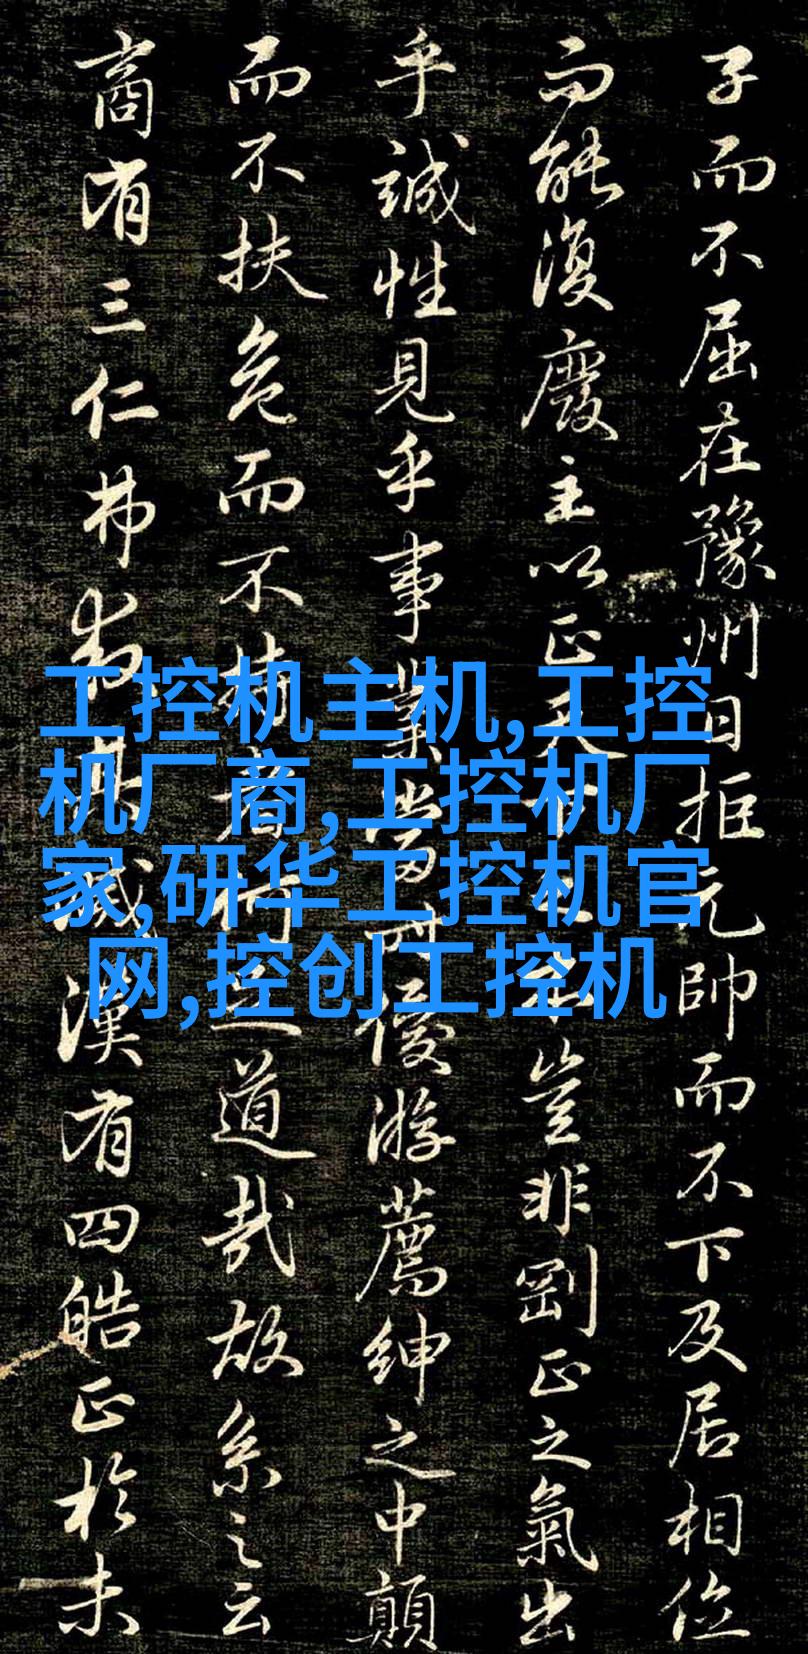 子而不屈在豫州日拒元帥而不下及居相位
而能復廢主以正天豈非剛正之氣出
乎誠性見乎事業當時優游薦紳之中顛
而不扶危而不者何道哉故系之云
商有三仁弗救滅漢有四皓正於未
工控机主机,工控
机厂商,工控机厂
家,研华工控机官
网,控创工控机